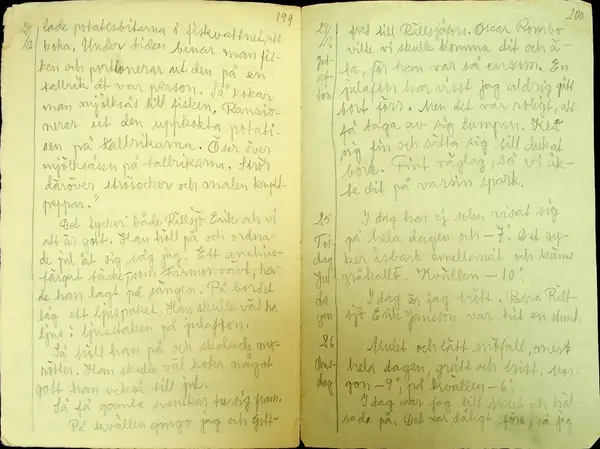 199
24/12
lade potatisbitarna i fiskvattnet, att
koka. Under tiden benar man fis-
ken och portionerar ut den på en
tallrik åt var person. Så kokar
man mjölksås till fisken. Ransio-
nerar ut den uppkokta potati-
sen på tallrikarna. Öser över
mjölksåsen på tallrikarna. Strör
däröver strösocker och malen krydd-
peppar."
Det tycker både Rällsjö Erik och vi
att är gott. Han höll på och ordna-
de jul åt sig såg jag. Ett
färgat täcke, som Farmor vävt, ha-
de han lagt på sängen. På bordet
låg ett ljuspaket. Han skulle väl ha
ljus i ljusstaken på julafton.
Så höll han på och skalade mo-
rötter. Han skulle väl koka något
gott han också till jul.
Så få gamla svenskar te sig fram.
På kvällen gingo jag och Gott-
200
24/12
Jul
af
ton
frid till Rällsjöfors. Oscar Rombo
ville vi skulle komma dit och ä-
ta, för han var så ensam. En
julafton har visst jag aldrig gått
bort förr. Men det var roligt, att
få taga av sig lumpen. Klä
sig fin och sätta sig till dukat
bord. Fint väglag, så vi åk-
te dit på varsin spark.
25
Tis
dag
Jul
da
gen
I dag har ej solen visat sig
på hela dagen och -7°. Det ry-
ker isbark emellanåt och känns
gråkallt. Kvällen -10°.
I dag är jag trött. Bara Räll-
sjö Erik Jansson var hit en stund.
26
Ons
dag
Mulet och lätt snöfall, mest
hela dagen, grått och trist. Mor-
gon -9° på kvällen -6°.
I dag var jag till och häl-
sade på. Det var dåligt före, så jag